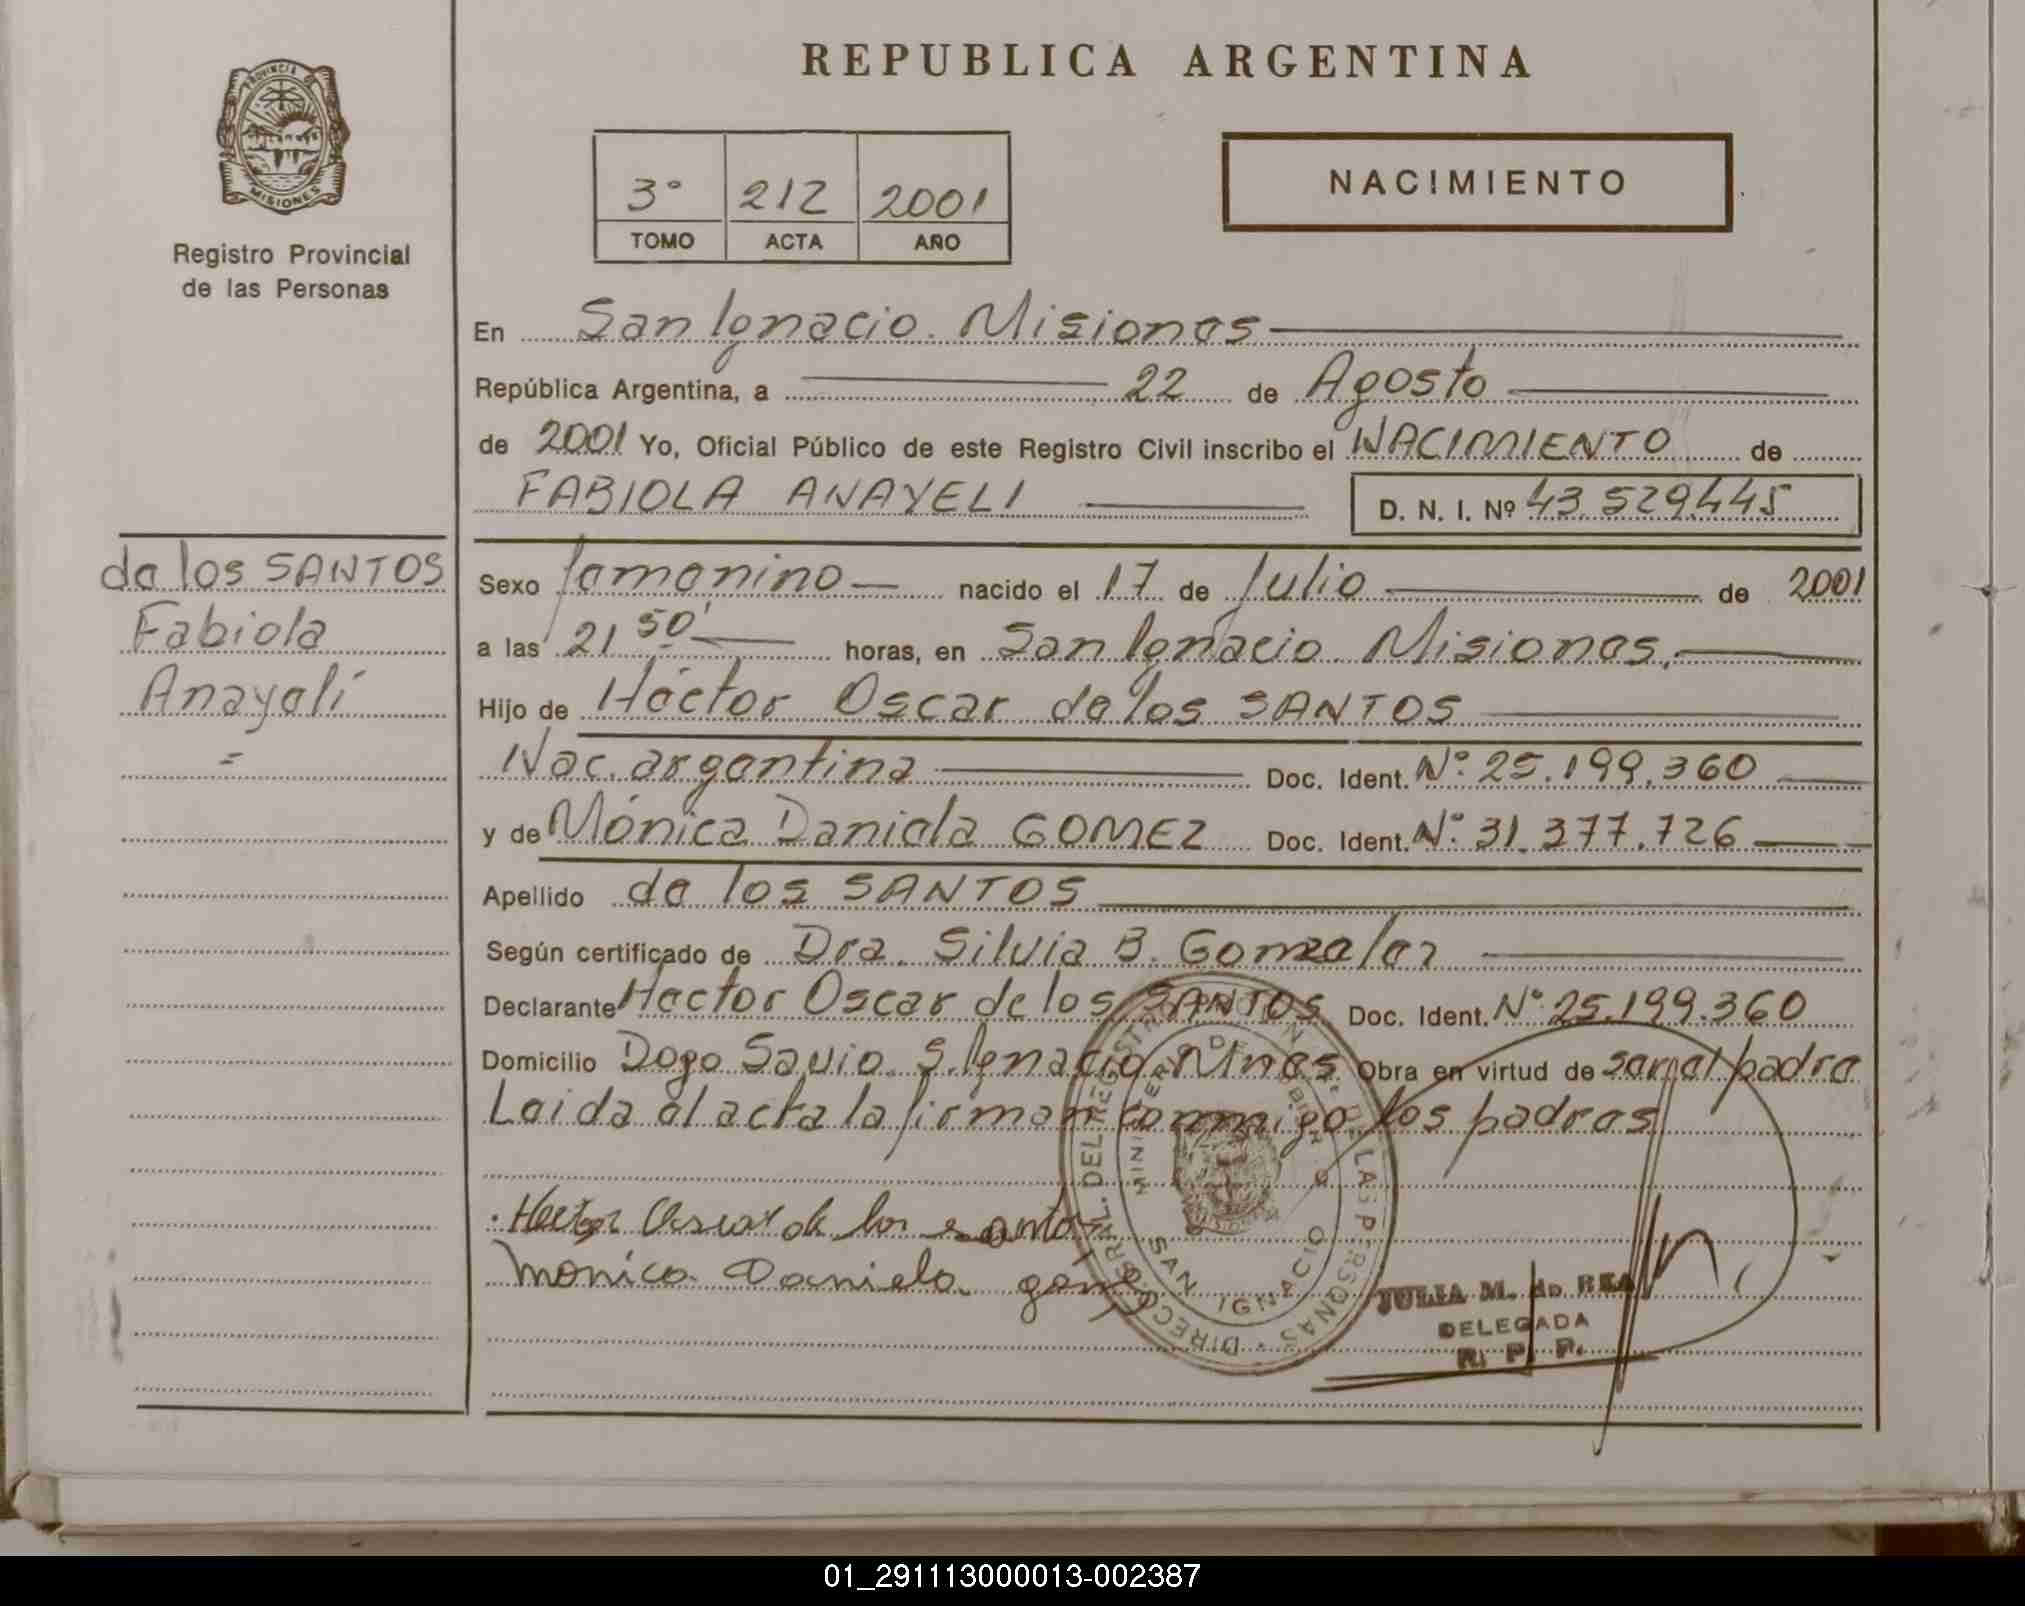 REPUBLICA ARGENTINA
PROVINCIA DE MISIONES
Registro Provincial
de las Personas
3° 212 2001
TOMO ACTA AÑO
NACIMIENTO
En San Ignacio. Misiones
República Argentina, a 22 de Agosto
de 2001 Yo, Oficial Público de este Registro Civil inscribo el NACIMIENTO de
FABIOLA ANAYELI D. N. I. Nº 43.529.445
de los SANTOS
Fabiola
Anayelí
=
Sexo femenino nacido el 17 de Julio de 2001
a las 21 50' horas, en San Ignacio. Misiones.
Hijo de Héctor Oscar de los SANTOS
Nac. argentina Doc. Ident. Nº. 25.199.360
y de Mónica Daniela GOMEZ Doc. Ident. Nº. 31.377.726
Apellido de los SANTOS
Según certificado de Dra. Silvia B. Gonzalez
Declarante Hector Oscar de los SANTOS Doc. Ident. Nº 25.199.360
Domicilio Dogo Savio. S. Ignacio Mnes Obra en virtud de ser el padre
Leida el acta la firman conmigo los padres
Hector Oscar de los santos
monica Daniela gomez
DIRECC. GRAL. DEL REGISTRO PROVINCIAL DE LAS PERSONAS
MINISTERIO DE GOBIERNO
SAN IGNACIO
JULIA M. de REA
DELEGADA
R. P. P.
01_291113000013-002387